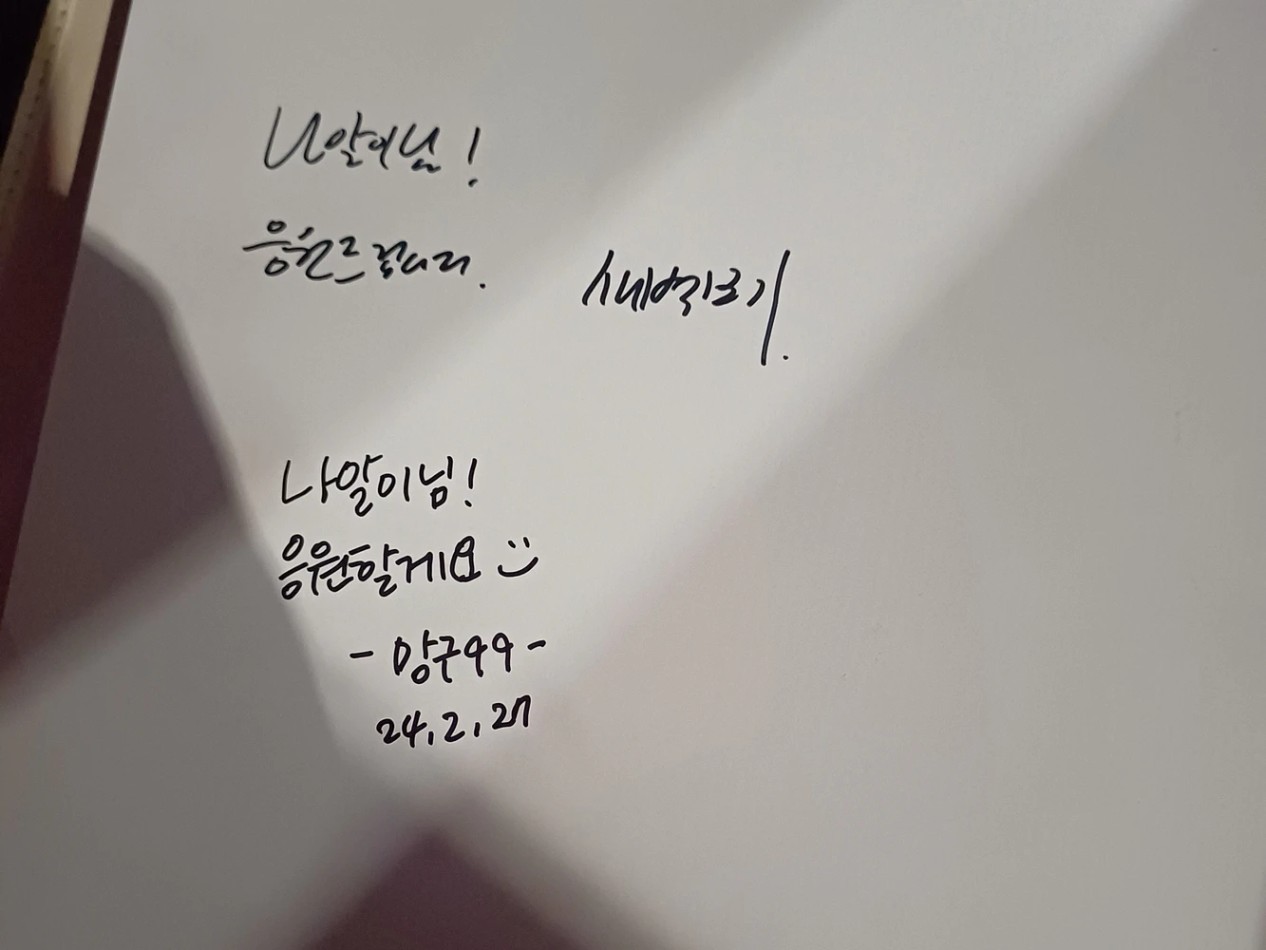 나알이님!
응원드립니다.
새벽보기.
나알이님!
응원할게요 :)
- 망구99 -
24.2.27